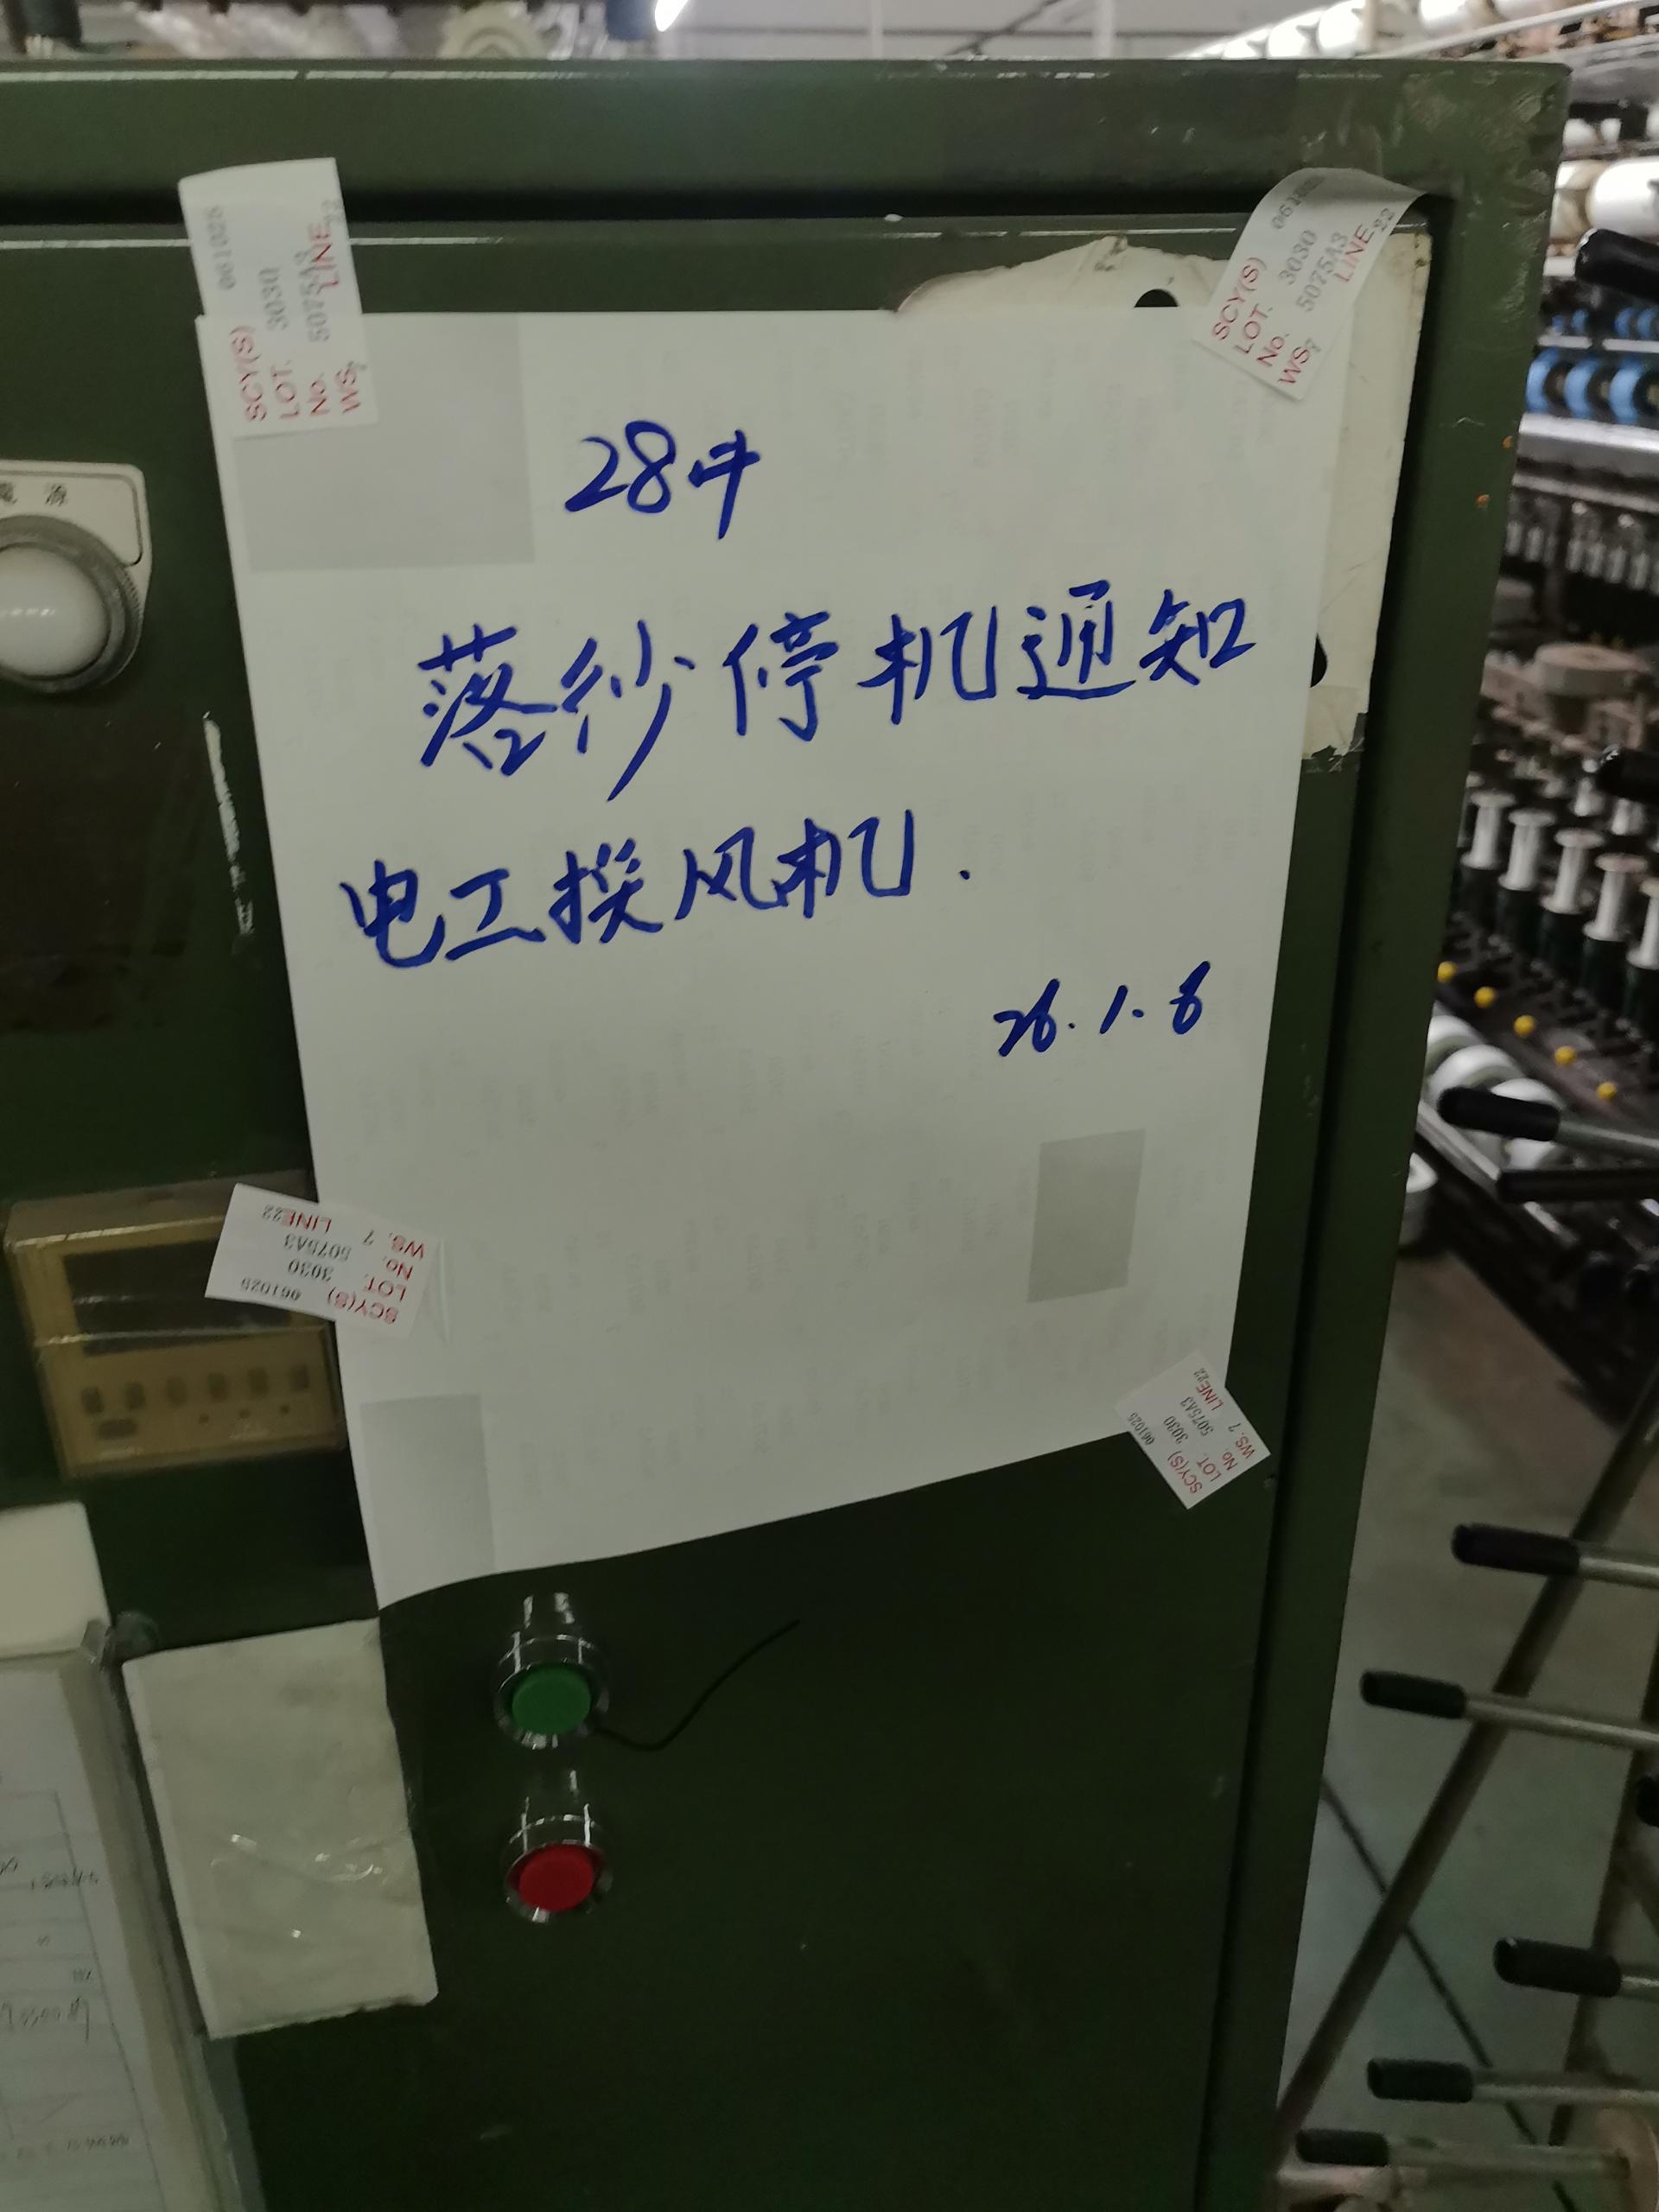 電 源
SCY(S) 061025
LOT. 3030
No. 5075A3
WS7 LINE22
SCY(S)
LOT. 3030
No. 5075A3
WS7 LINE22
28#
落纱停机通知
电工换风机.
26.1.6
SCY(S) 061025
LOT. 3030
No. 5075A3
WS.7 LINE22
SCY(S) 061025
LOT. 3030
No. 5075A3
WS.7 LINE22